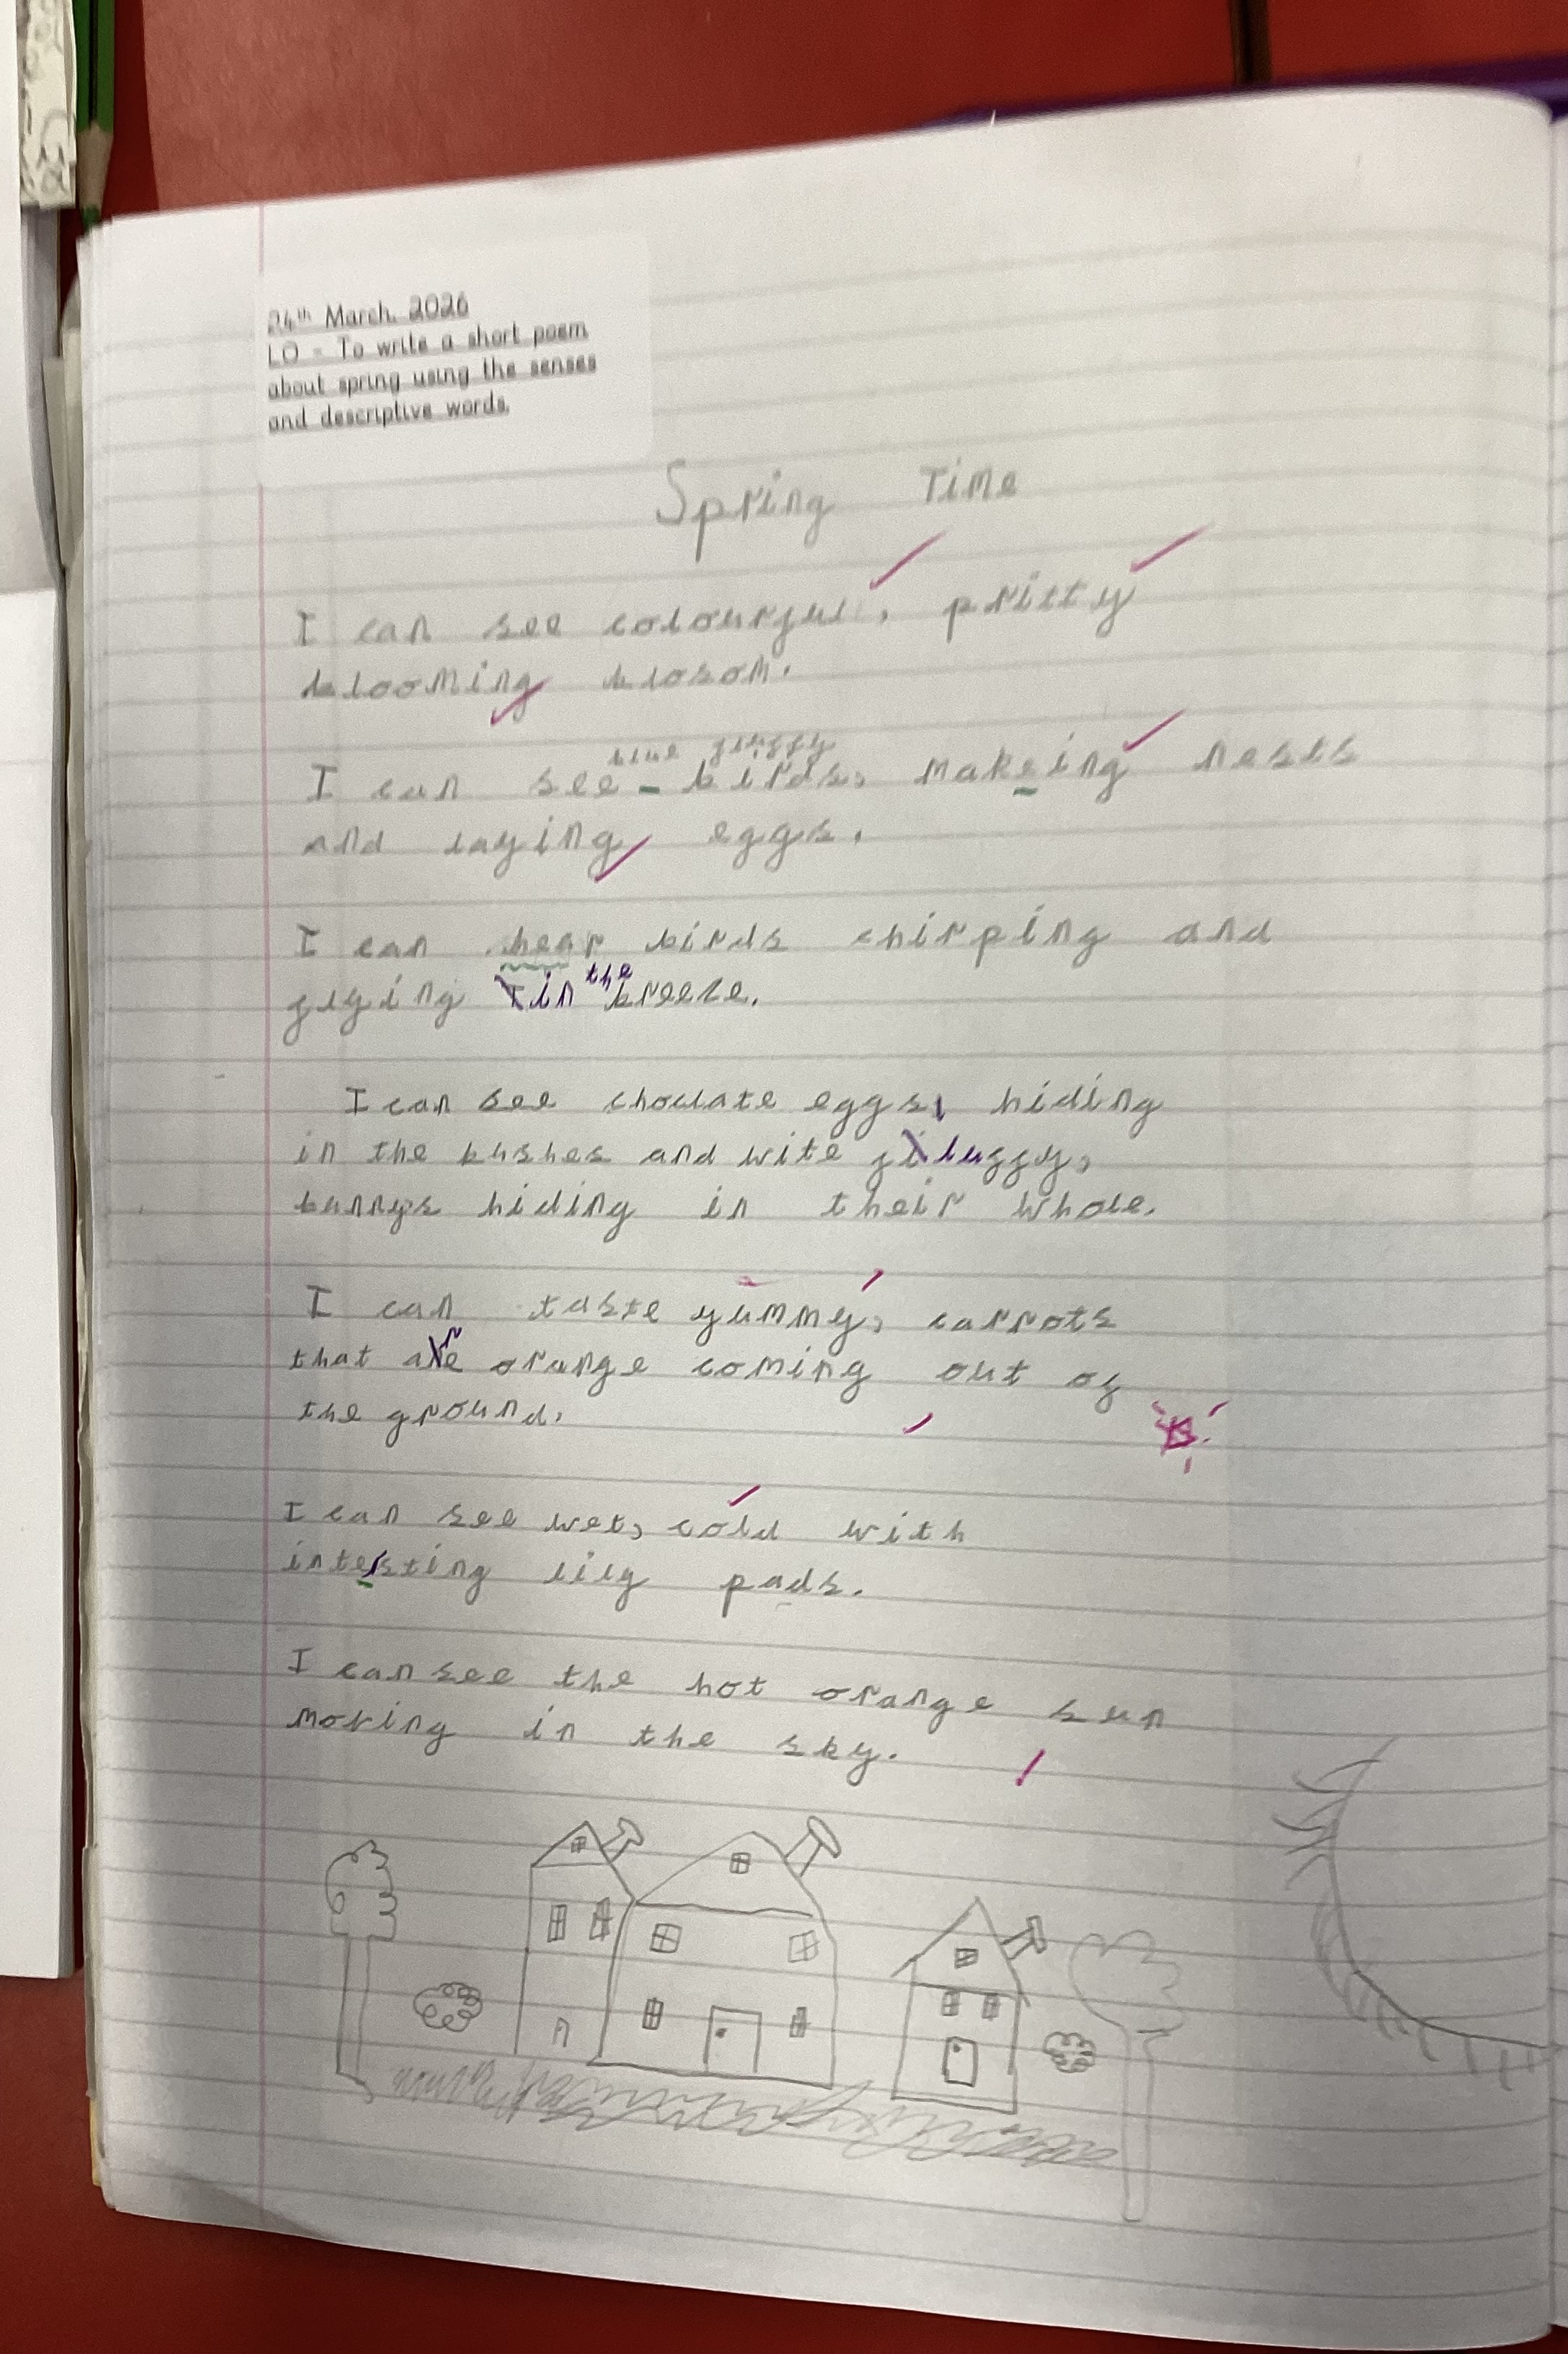 24th March 2026
LO - To write a short poem
about spring using the senses
and descriptive words.
Spring Time
I can see colourful, pritty
blooming blosom.
blue fluffy
I can see birds, makeing nests
and laying eggs.
I can hear birds chirping and
flying in the breeze.
I can see choclate eggs, hiding
in the bushes and wite fluffy,
bunnys hiding in their whole.
I can taste yummy, carrots
that are orange coming out of
the ground.
I can see wet, cold with
intersting lily pads.
I can see the hot orange sun
moving in the sky.